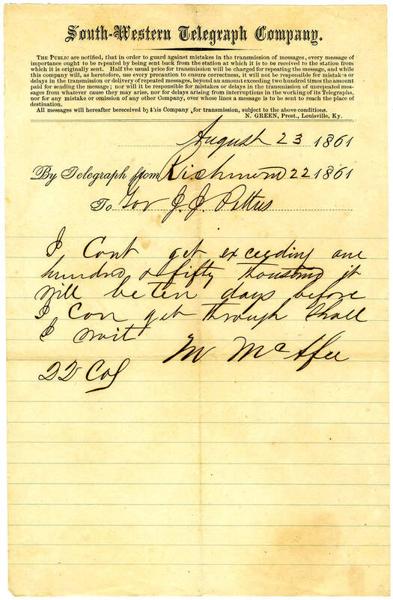 South-Western Telegraph Company.
THE PUBLIC are notified, that in order to guard against mistakes in the transmission of messages, every message of
importance ought to be repeated by being sent back from the station at which it is to be received to the station from
which it is originally sent. Half the usual price for transmission will be charged for repeating the message, and while
this company will, as heretofore, use every precaution to ensure correctness, it will not be responsible for mistakes or
delays in the transmission or delivery of repeated messages, beyond an amount exceeding two hundred times the amount
paid for sending the message; nor will it be responsible for mistakes or delays in the transmission of unrepeated mes-
sages from whatever cause they may arise, nor for delays arising from interruptions in the working of its Telegraphs,
nor for any mistake or omission of any other Company, over whose lines a message is to be sent to reach the place of
destination.
All messages will hereafter bereceived by this Company for transmission, subject to the above conditions.
N. GREEN, Prest., Louisville, Ky.
August 23 1861
By Telegraph from Richmond 22 1861
To Gov J. J. Pettus
I Cant get exceeding one
hundred & fifty thousand it
will be ten days before
I Can get through Shall
I wait
M McAfee
22 Col